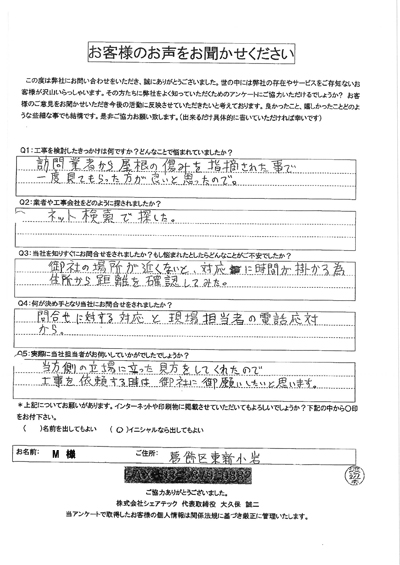 お客様のお声をお聞かせください
この度は弊社にお問い合わせをいただき、誠にありがとうございました。世の中には弊社の存在やサービスをご存知ないお
客様が沢山いらっしゃいます。その方たちに弊社をよく知っていただくためのアンケートにご協力いただけるでしょうか？ お客
様のご意見をお聞かせいただき今後の活動に反映させていただきたいと考えております。良かったこと、嬉しかったことどのよう
な些細な事でも結構です。是非ご協力お願い致します。（出来るだけ具体的に書いていただければ幸いです）
Q1：工事を検討したきっかけは何ですか？どんなことで悩まれていましたか？
訪問業者から屋根の傷みを指摘された事で
一度見てもらった方が良いと思ったので。
Q2：業者や工事会社をどのように探されましたか？
ネット検索で探した。
Q3：当社を知りすぐにお問合せをされましたか？もし悩まれたとしたらどんなことがご不安でしたか？
御社の場所が近くないと、対応に時間が掛かる為
住所から距離を確認してみた。
Q4：何が決め手となり当社にお問合せをされましたか？
問合せに対する対応と現場担当者の電話応対
から。
Q5：実際に当社担当者がお伺いしていかがでしたでしょうか？
当方側の立場に立った見方をしてくれたので
工事を依頼する時は御社に御願いしたいと思います。
＊上記についてお願いがあります。インターネットや印刷物に掲載させていただいてもよろしいでしょうか？下記の中から〇印
をお付け下さい。
（　）名前を出してもよい　（〇）イニシャルなら出してもよい
お名前： M 様 ご住所： 葛飾区東新小岩
ご協力ありがとうございました。
株式会社シェアテック 代表取締役 大久保 誠二
当アンケートで取得したお客様の個人情報は関係法規に基づき厳正に管理いたします。